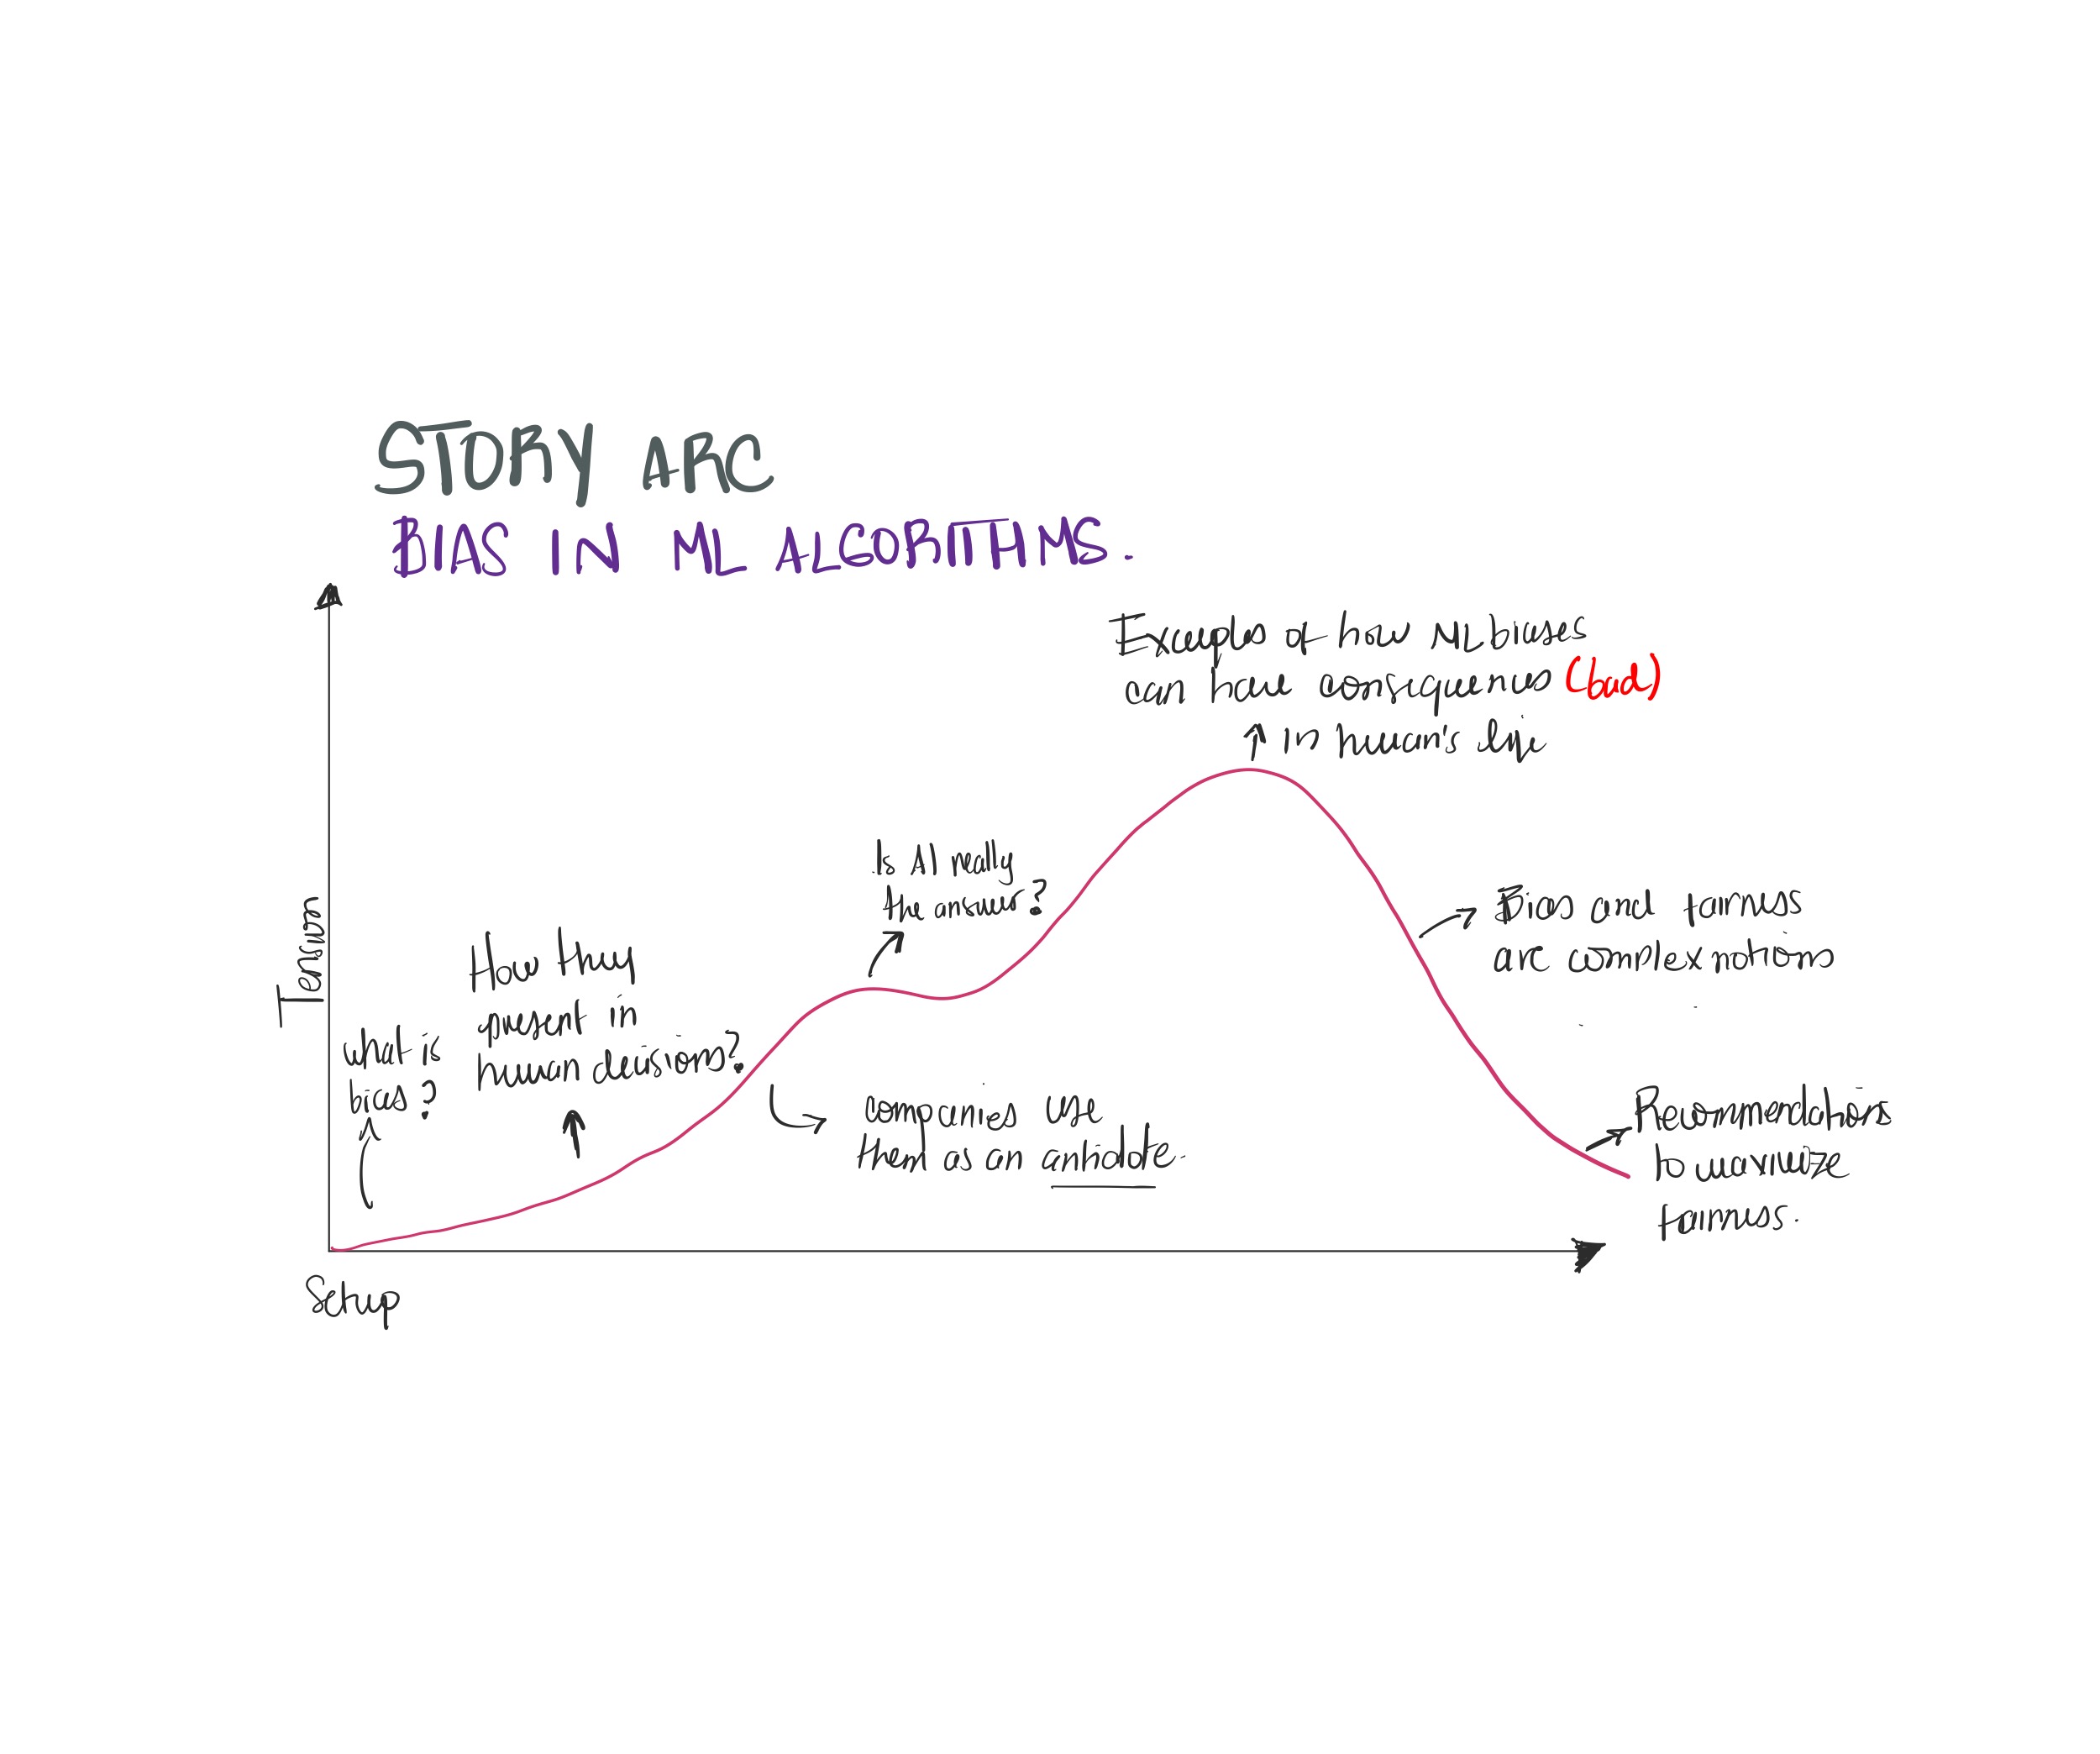 STORY ARC
BIAS IN ML ALGORITHMS.
Tension
What is
bias?
How they
present in
human decisions?
Is AI really
the answer?
Companies use
them as an antidote.
Examples of how ML biases
can have consequences (bad)
in human's life
Bias and fairness
are complex notions
Recommendations
to maximize
fairness.
Setup